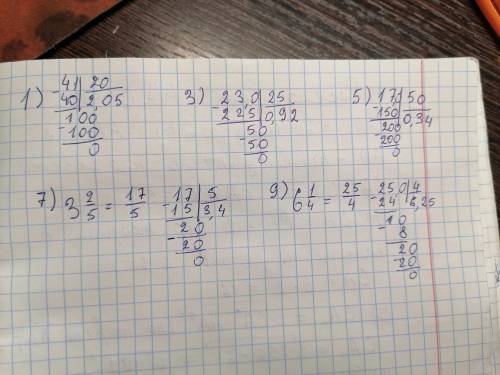 1) -41 | 20
40 | 2,05
100
-100
0
3) -23,0 | 25
225 | 0,92
50
-50
0
5) 170 | 50
-150 | 0,34
200
-200
0
7) 3 2/5 = 17/5
-17 | 5
15 | 3,4
20
-20
0
9) 6 1/4 = 25/4
-250 | 4
24 | 6,25
-10
8
20
-20
0